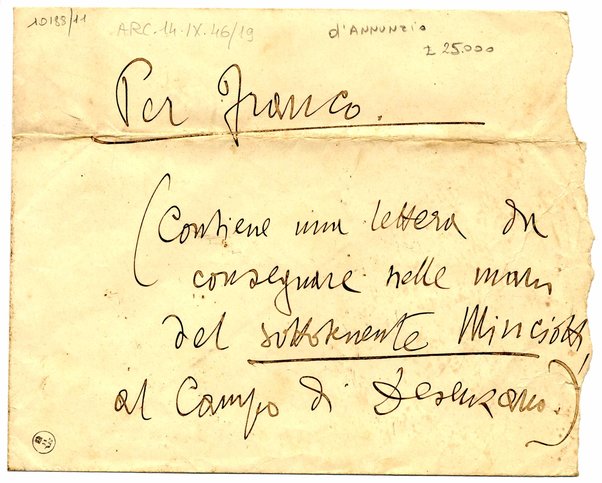 10188/11
ARC.14.IX.46/19
d'ANNUNZIO
£ 25.000
Per Franco.
(Contiene una lettera da
consegnare nelle mani
del sottotenente Minciotti,
al Campo di Desenzano.)